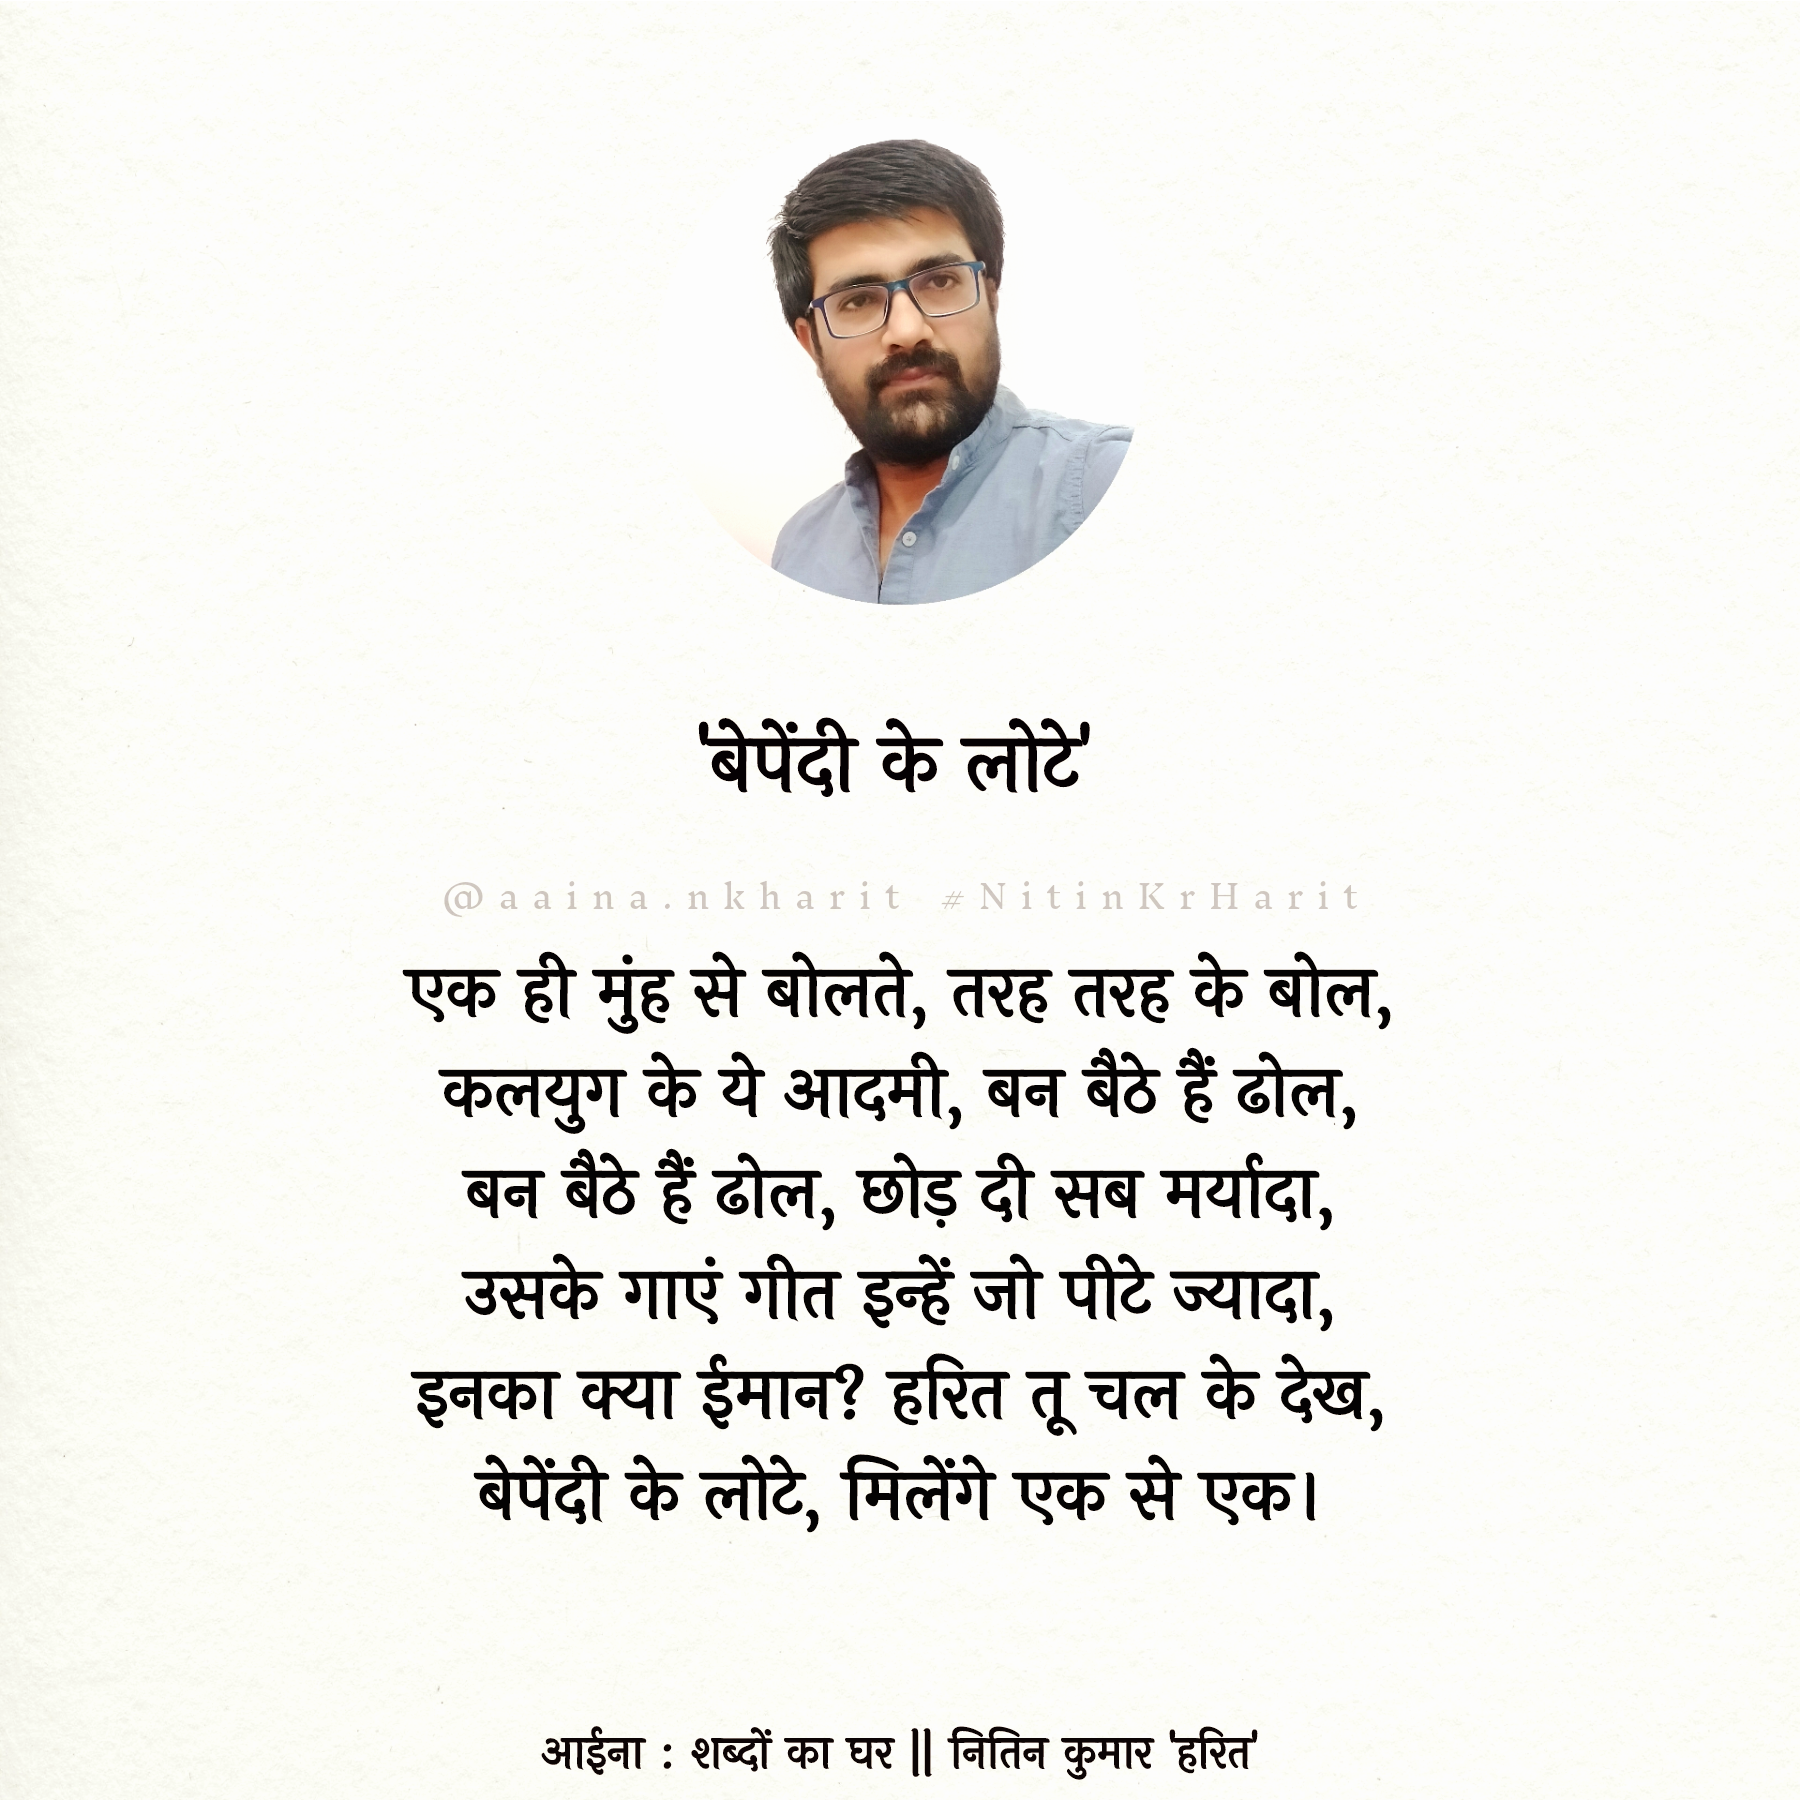 'बेपेंदी के लोटे'
@aaina.nkharit #NitinKrHarit
एक ही मुंह से बोलते, तरह तरह के बोल,
कलयुग के ये आदमी, बन बैठे हैं ढोल,
बन बैठे हैं ढोल, छोड़ दी सब मर्यादा,
उसके गाएं गीत इन्हें जो पीटे ज्यादा,
इनका क्या ईमान? हरित तू चल के देख,
बेपेंदी के लोटे, मिलेंगे एक से एक।
आईना : शब्दों का घर || नितिन कुमार 'हरित'